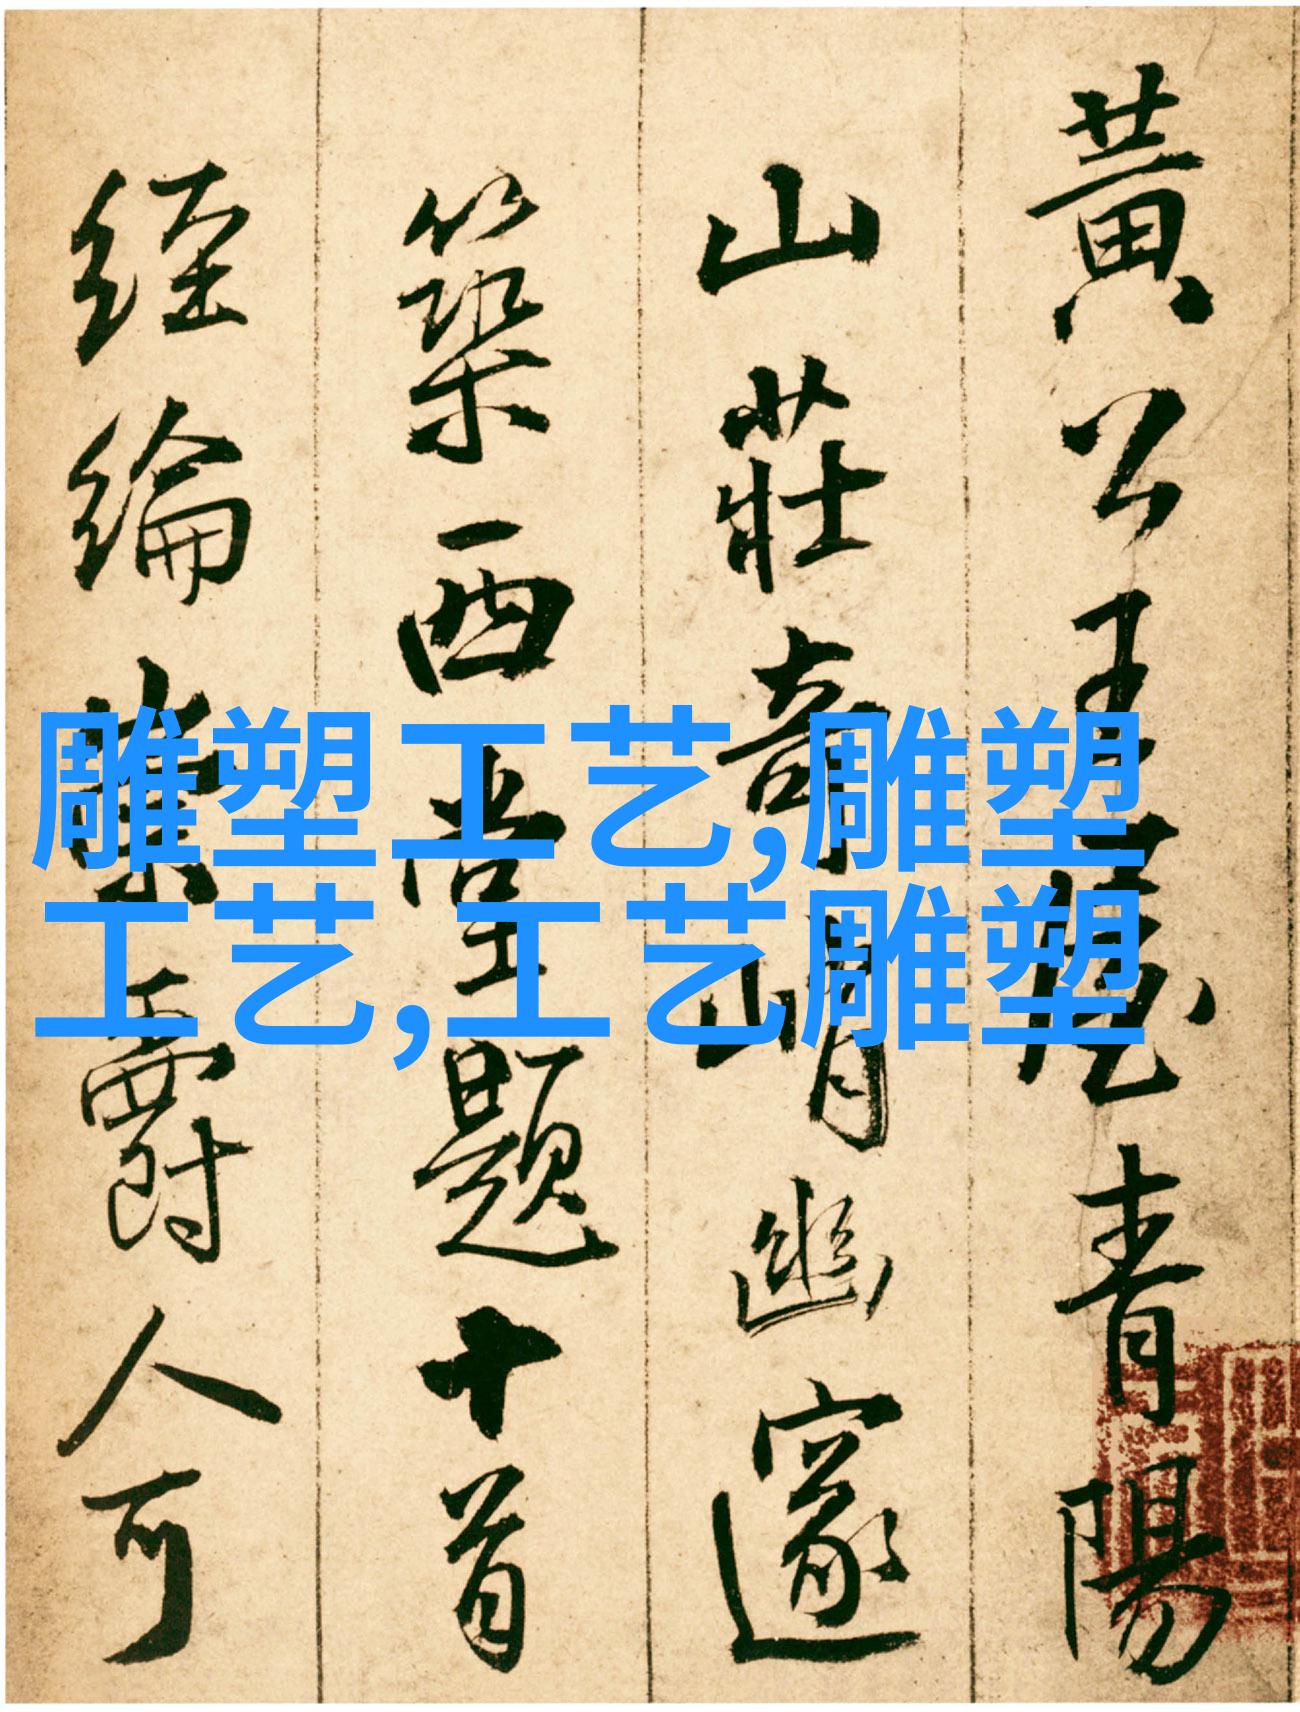 黃公王屋青陽
山莊奇峭幽邃
築西堂題十首
經綸業爵人可
雕塑工艺,雕塑
工艺,工艺雕塑